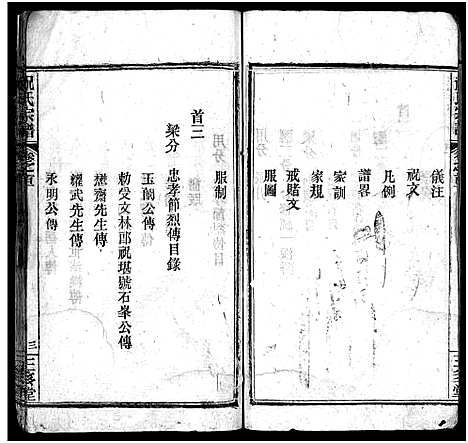 儀注
祝文
凡例
譜畧
家訓
家規
戒賭文
服圖
服制
首三
梁分
忠孝節烈傳目錄
玉蘭公傳
勅受文林郎祝堪號石峯公傳
懋齋先生傳
耀武先生傳
永明公傳
氏宗譜
三
堂